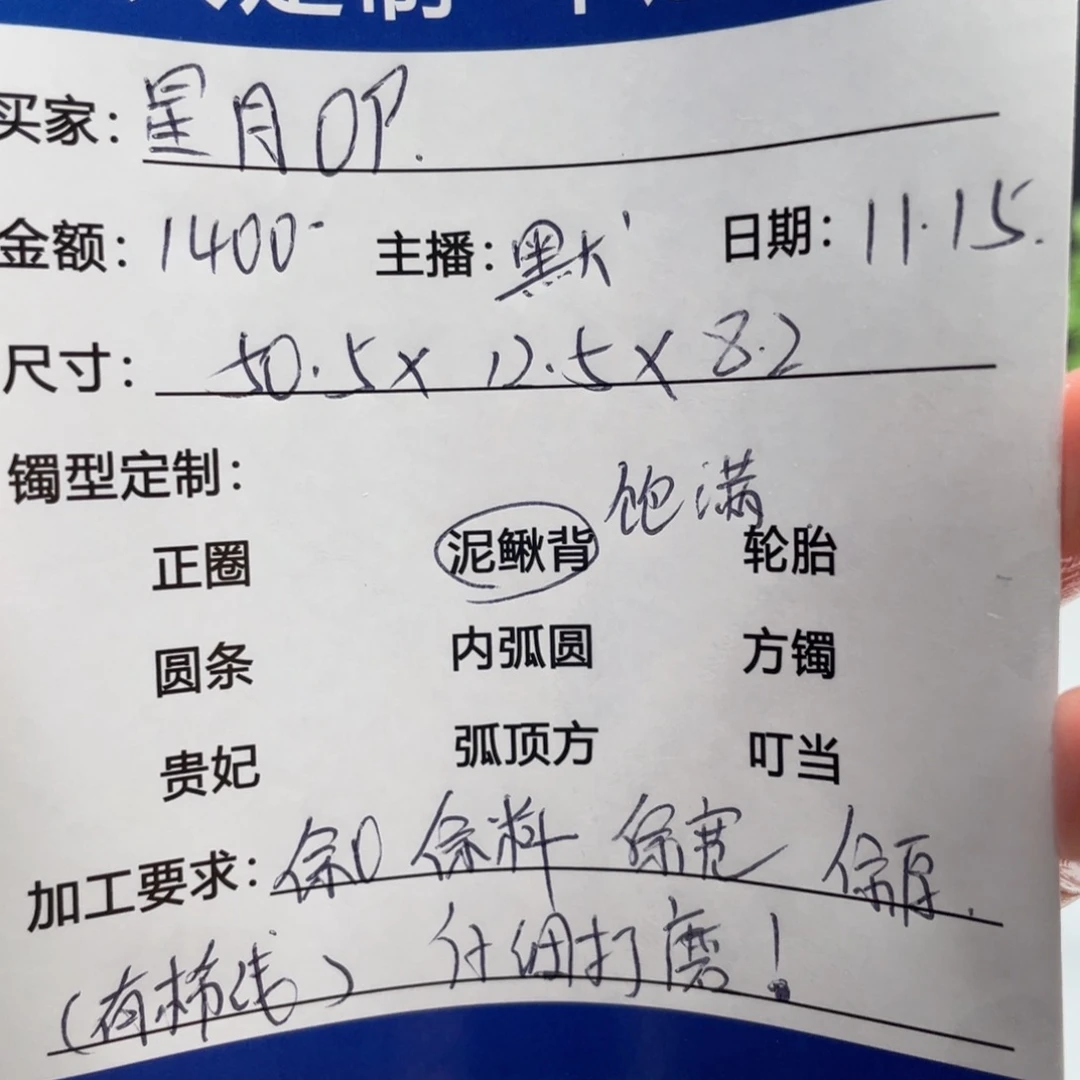 买家：星月OP.
金额：1400- 主播：默 日期：11.15.
尺寸：50.5x 12.5x 8.2
镯型定制：
饱满
正圈 泥鳅背 轮胎
圆条 内弧圆 方镯
贵妃 弧顶方 叮当
加工要求：保口 保料 保宽 保厚.
（有棉线） 仔细打磨！